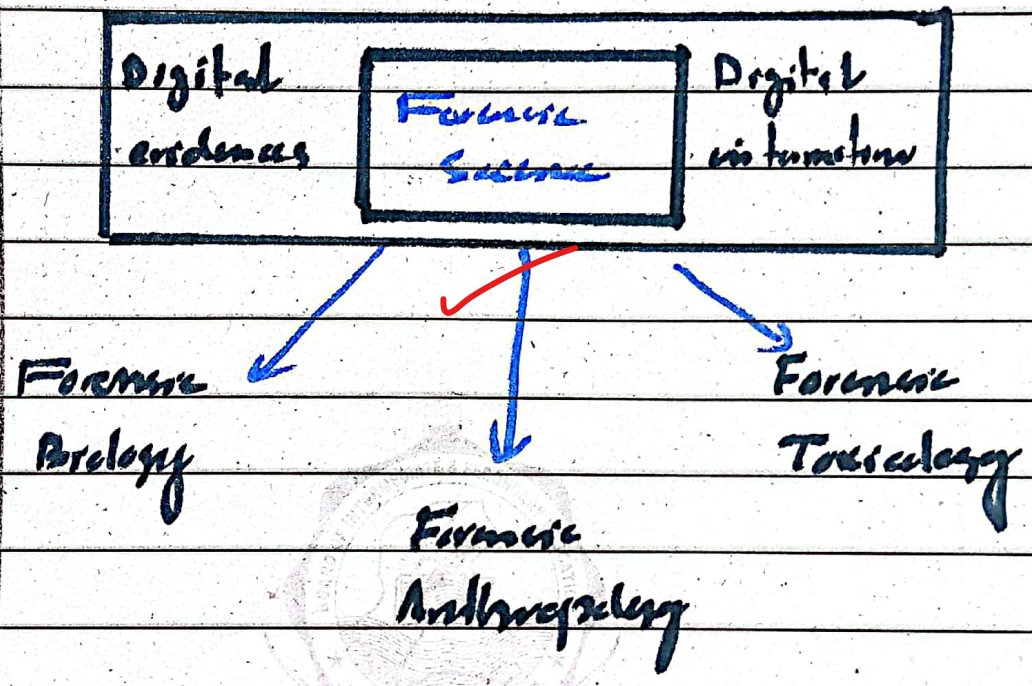 Digital
evidences
Forensic
Science
Digital
information
Forensic
Biology
Forensic
Toxicology
Forensic
Anthropology